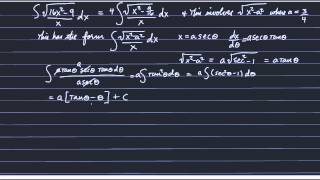 ∫ √(16x²-9)/x dx = 4 ∫ √(x²-9/16)/x dx * This involves √(x²-a²) where a = 3/4
This has the form ∫ √(x²-a²)/x dx x = a secθ dx/dθ = a secθ tanθ
√(x²-a²) = a√(sec²-1) = a tanθ
∫ a tanθ a secθ tanθ dθ / a secθ = a∫ tan²θ dθ = a∫(sec²θ-1) dθ
= a[tanθ - θ] + C